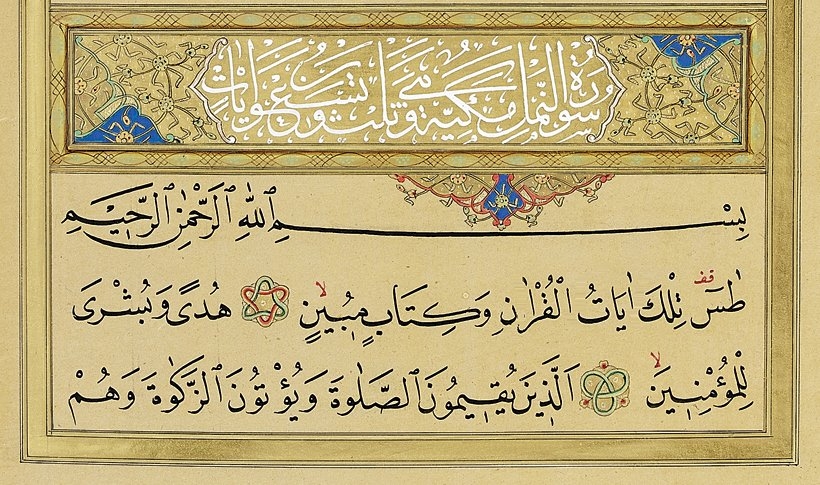 سُورَةُ النَّمْلِ مَكِّيَّةٌ وَهِيَ ثَلٰثٌ وَتِسْعُونَ اٰيَاتٍ
بِسْمِ ٱللّٰهِ ٱلرَّحْمٰنِ ٱلرَّحٖيمِ
طٰسٓ قف تِلْكَ اٰيَاتُ الْقُرْاٰنِ وَكِتَابٍ مُبٖينٍ لا هُدًى وَبُشْرٰى
لِلْمُؤْمِنٖينَ لا اَلَّذٖينَ يُقٖيمُونَ الصَّلٰوةَ وَيُؤْتُونَ الزَّكٰوةَ وَهُمْ